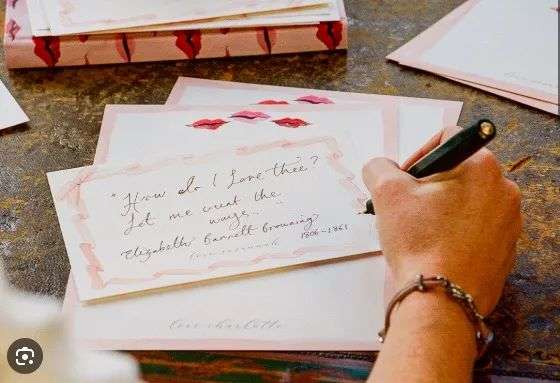 "How do I Love thee?
Let me count the
ways..."
Elizabeth Barrett Browning
1806-1861
love charlotte